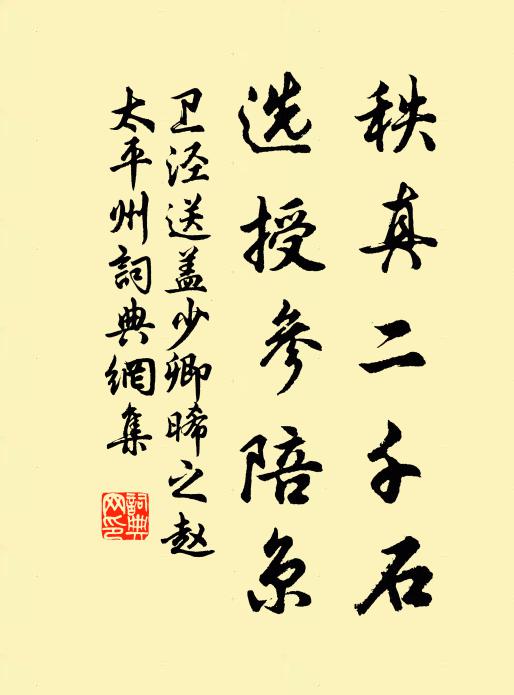 秩真二千石
选授参陪京
卫泾送盖少卿晞之赵
太平州詞典網集
詞典网印